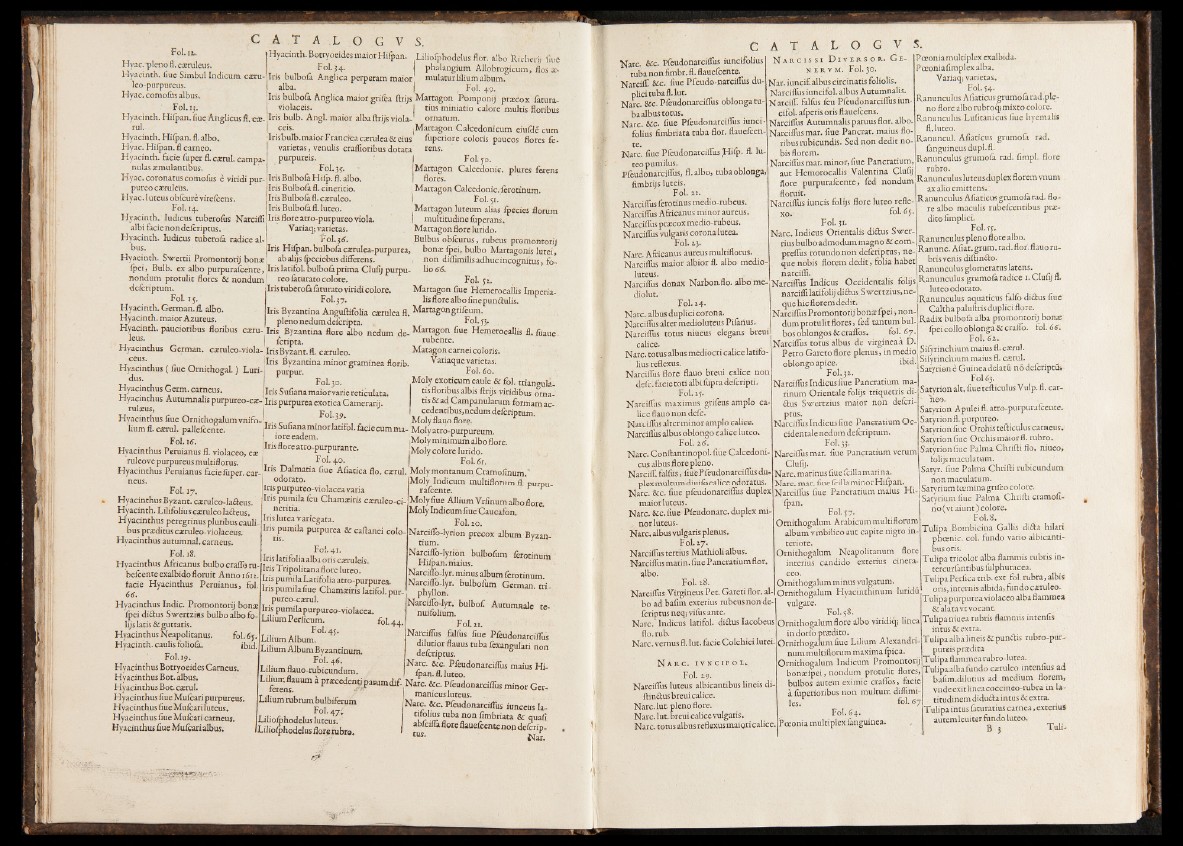 C A T A L O G V S.
Fol. 12.
Hyac. pleno fl. cæruleus.
Hyacinth. siue Simbul Indicum. cæru-
leo-purpureus.
Hyac. comosus albus.
Fol. 13.
Hyacinth. Hispan. siue Anglicus fl. cæ-
rul.
Hyacinth. Hispan. fl. albo.
Hyac. Hispan. fl carneo.
Hyacinth. facie super fl. cærul. campa-
nulas æmulantibus.
Hyac. coronatus comosus è viridi pur-
pureo cæruleus.
Hyac. luteus obscurè virescens.
Fol. 14.
Hyacinth. Indicus tuberosus Narcissi
albi facie non descriptus.
Hyacinth. Indicus tuberosa radice al-
bus.
Hyacinth. Swertii Promontorij bonæ
spei, Bulb. ex albo purpurascente,
nondum protulit flores & nondum
descriptum.
Fol. 15.
Hyacinth. German. fl. albo.
Hyacinth. maior Azureus.
Hyacinth. paucioribus floribus cæru-
leus.
Hyacinthus German. cæruleo-viola-
ceus.
Hyacinthus ( siue Ornithogal. ) Luri-
dus.
Hyacinthus Germ. carneus.
Hyacinthus Autumnalis purpureo-cæ-
ruleus,
Hyacinthus siue Ornithogalum vnifo-
lium fl. cærul. pallescente.
Fol. 16.
Hyacinthus Peruianus fl. violaceo, cæ
ruleove purpureus multiflorus.
Hyacinthus Peruianus facie super. car-
neus.
Fol. 17.
Hyacinthus Byzant. cæruleo-lacteus.
Hyacinth. Lilifolius cæruleo lacteus,
Hyacinthus peregrinus pluribus cauli
bus præditus cæruleo-violaceus.
Hyacinthus autumnal. carneus.
Fol. 18.
Hyacinthus Africanus bulbo crasso ru-
bescente exalbido floruit Anno 1612.
facie Hyacinthus Peruianus, fol.
66.
Hyacinthus Indic. Promontorij bonæ
spei dictus Swertzius bulbo albo fo-
lijs latis & guttatis.
Hyacinthus Neapolitanus. fol. 65.
Hyacinth. caulis foliosa. ibid.
Fol. 19.
Hyacinthus Bottyoeides Carneus.
Hyacinthus Bot. albus.
Hyacinthus Bot. cærul.
Hyacinthus siue Muscari purpureus.
Hyacinthus siue Muscari luteus.
Hyacinthus siue Muscari carneus.
Hyacinthus siue Muscari albus.
Hyacinth. Botryoeides maior Hispan.
Fol. 34.
Iris bulbosa Anglica perperam maior
alba.
Iris bulbosa Anglica maior grisea strijs
violaceis.
Iris bulb. Angl. maior alba strijs viola-
ceis.
Iris bulb. maior Francica cærulea & eius
varietas, venulis crassioribus dotata
purpureis.
Fol. 35.
Iris Bulbosa Hisp. fl. albo.
Iris Bulbosa fl. cineritio.
Iris Bulbosa fl. cæruleo.
Iris Bulbosa fl. luteo.
Iris flore atro-purpureo viola.
Variaq; varietas.
Fol. 36.
Iris Hispan. bulbosa cærulea-purpurea,
ab alijs speciebus differens.
Iris latifol. bulbosa prima Clusij purpu-
reo saturato colore.
Iris tuberosa saturato viridi colore.
Fol. 37.
Iris Byzantina Angustifolia cærulea fl.
pleno nedum descripta.
Iris Byzantina flore albo nedum de-
scripta.
Iris Byzant. fl. cæruleo.
Iris Byzantina minor graminea florib.
purpur.
Fol. 30.
Iris Susiana maior varie reticulata.
Iris purpurea exotica Camerarij.
Fol. 39.
Iris Susiana minor latifol. facie cum ma-
iore eadem.
Iris flore atro-purpurante.
Fol. 40.
Iris Dalmatia siue Asiatica flo. cærul.
odorato.
Iris purpureo-violacea varia
Iris pumila seu Chamæiris cæruleo-ci-
neritia.
Iris lutea variegata.
Iris pumila purpurea & castanei colo-
ris.
Fol. 41.
Iris latifolia alba oris cæruleis.
Iris Tripolitana flore luteo.
Iris pumila Latifolia atro-purpurea.
Iris pumila siue Chamæiris latifol. pur-
pureo-cærul.
Iris pumila purpureo-violacea.
Lilium Persicum. fol. 44.
Fol. 45.
Lilium Album.
Lilium Album Byzantinum.
Fol. 46.
Lilium flauo-rubicundum.
Lilium flauum à præcedenti pasum dif-
ferens.
Lilium rubrum bulbiferum
Fol. 47.
Liliosphodelus luteus.
Liliosphodelus flore rubro.
Liliosphodelus flor. albo Richerij siue
phalangium Allobrogicum, flos æ-
mulatur lilium album.
Fol. 49.
Martagon Pomponij præcox satura-
tius miniatio calore multis floribus
ornatum.
Martagon Calcedonicum eiusdē cum
superiore coloris paucos flores fe-
rens.
Fol. 50.
Martagon Calcedonic. plures ferens
flores.
Martagon Calcedonic. serotinum.
Fol. 51.
Martagon luteum alias species florum
multitudine superans.
Martagon flore lurido.
Bulbus obscurus, rubeus promontorij
bonæ spei, bulbo Martagonis lutei,
non dissimilis adhuc incognitus, fo-
lio 66.
Fol. 52.
Martagon siue Hemerocallis Imperia-
lis flore albo sine punctulis.
Martagon griseum.
Fol. 53.
Martagon siue Hemerocallis fl. suaue
rubente.
Matagon carnei coloris.
Variaque varietas.
Fol. 60.
Moly exoticum caule & fol. triangula-
tis floribus albis strijs viridibus orna-
tis & ad Campanularum formam ac-
cedentibus, nedum descriptum.
Moly flauo flore.
Moly atro-purpureum.
Moly minimum albo flore.
Moly colore lurido.
Fol. 61.
Moly montanum Cramosinum.
Moly Indicum multiflorum fl. purpu-
rascente.
Moly siue Allium Vrsinum albo flore.
Moly Indicum siue Caucason.
Fol. 20.
Narcisso-lyrion præcox album Byzan-
tium.
Narcisso-lyrion bulbosum serotinum
Hispan. maius.
Narcisso-lyr. minus album serotinum.
Narcisso-lyr. bulbosum German. tri-
phyllon.
Narcisso-lyr. bulbos. Autumnale te-
nuifolium.
Fol. 21.
Narcissus falsus siue Pseudonarcissus
dilutior flauus tuba sexangulari non
descriptus.
Narc. &c. Pseudonarcissus maius Hi-
span. fl. luteo.
Narc. &c. Pseudonarcissus minor Ger-
manicus luteus.
Narc. &c. Pseudonarcissus iunceus la-
tifolius tuba non fimbriata & quasi
abscissa flore flauescente non descrip-
tus.
Nar.
C A T A L O G V S.
Narc. &c. Pseudonarcissus iuncifolius
tuba non fimbr. fl. flauescente.
Narciss. &c. siue Pseudo-narcissus du-
plici tuba fl. lut.
Narc. &c. Pseudonarcissus oblonga tu-
ba albus totus.
Narc. &c. siue Pseudonarcissus iunci-
folius fimbriata tuba flor. flauescen-
te.
Narc. siue Pseudonarcissus Hisp. fl. lu-
teo pumilus.
Pseudonarcissus, fl. albo, tuba oblonga,
fimbrijs luteis.
Fol. 22.
Narcissus serotinus medio-rubeus.
Narcissus Africanus minor aureus.
Narcissus præcox medio-rubeus.
Narcissus vulgaris corona lutea.
Fol. 23.
Narc. Africanus aureus multiflorus.
Narcissus maior albior fl. albo medio-
luteus.
Narcissus donax Narbon. flo. albo me-
diolut.
Fol. 24.
Narc. albus duplici corona.
Narcissus alter medioluteus Pisanus.
Narcissus totus niueus elegans breui
calice.
Narc. totus albus mediocri calice latifo-
lius reflexus.
Narcissus flore flauo breui calice non
desc. facie toti albi supra descripti.
Fol. 25.
Narcissus maximus griseus amplo ca-
lice flauo non desc.
Narcissus alter minor amplo calice.
Narcissus albus oblongo calice luteo.
Fol. 26.
Narc. Constantinopol. siue Calcedoni-
cus albus flore pleno.
Narciss. falsus, siue Pseudonarcissus du-
plex multum diuisus calice odoratus.
Narc. &c. siue pseudonarcissus duplex
maior luteus.
Narc. &c. siue Pseudonarc. duplex mi-
nor luteus.
Narc. albus vulgaris plenus.
Fol. 27.
Narcissus tertius Mathioli albus.
Narcissus marin. siue Pancratium flor.
albo.
Fol. 28.
Narcissus Virgineus Pet. Gareti flor. al-
bo ad basim exterius rubeus non de-
scriptus neq; visus ante.
Narc. Indicus latifol. dictus Iacobeus
flo. rub.
Narc. vernus fl. lut. facie Colchici lutei.
N A R C. I V N C I F O L.
Fol. 29.
Narcissus luteus albicantibus lineis di-
stinctus breui calice.
Narc. lut. pleno flore.
Narc. lut. breui calice vulgatis.
Narc. totus albus reflexus maiori calice.
N A R C I S S I D I V E R S O R. G E-
N E R V M. Fol. 30.
Nar. iuncif. albus circinatis foliolis.
Narcissus iuncifol. albus Autumnalis.
Narciss. falsus seu Pseudonarcissus iun-
cifol. asperis oris flauescens.
Narcissus Autumnalis paruus flor. albo.
Narcissus mar. siue Pancrat. maius flo-
ribus rubicundis. Sed non dedit no-
bis florem.
Narcissus mar. minor, siue Pancratium,
aut Hemorocallis Valentina Clusij
flore purpurascente, sed nondum
floruit.
Narcissus iuncis folijs flore luteo refle-
xo. fol. 65.
Fol. 31.
Narc. Indicus Orientalis dictus Swer-
tius bulbo admodum magno & com-
presso rotundo non descriptus, ne-
que nobis florem dedit, folia habet
narcissi.
Narcissus Indicus Occidentalis folijs
narcissi latifolij dictus Swertzius, ne-
que hic florem dedit.
Narcissus Promontorij bonæ spei, non-
dum protulit flores, sed tantum bul-
bos oblongos & crassos. fol. 67.
Narcissus totus albus de virginea à D.
Petro Gareto flore plenus, in medio
oblongo apice. ibid.
Fol. 32.
Narcissus Indicus siue Pancratium ma-
rinum Orientale folijs triquetris di-
ctus Swertzius maior non descri-
ptus.
Narcissus Indicus siue Pancratium Oc-
cidentale nedum descriptum.
Fol. 33.
Narcissus mar. siue Pancratium verum
Clusij.
Narc. marinus siue scilla marina.
Narc. mar. siue scilla minor Hispan.
Narcissus siue Pancratium maius Hi-
span.
Fol. 57.
Ornithogalum Arabicum multiflorum
album vmbilico aut capite nigro in-
teriore.
Ornithogalum Neapolitanum flore
interius candido exterius cinera-
ceo.
Ornithogalum minus vulgatum.
Ornithogalum Hyacinthinum luridū
vulgare.
Fol. 58.
Ornithogalum flore albo viridiq; linea
in dorso prædito.
Ornithogalum siue Lilium Alexandri-
num multiflorum maxima spica.
Ornithogalum Indicum Promontorij
bonæ spei, nondum protulit flores,
bulbos autem eximie crassos, facie
à superioribus non multum dissimi-
les. fol. 67
Fol. 64.
Pœonia multiplex sanguinea.
Pœonia multiplex exalbida.
Pœonia simplex alba,
Variaq; varietas,
Fol. 54.
Ranunculus Asiaticus grumosa rad. ple-
no flore albo rubroq; mixto colore.
Ranunculus Lusitanicus siue hyemalis
fl. luteo.
Ranuncul. Asiaticus grumosa rad.
sanguineus dupl. fl.
Ranunculus grumosa rad. simpl. flore
rubro.
Ranunculus luteus duplex florem vnum
ax alio emittens.
Ranunculus Asiaticus grumosa rad. flo-
re albo maculis rubescentibus præ-
ditus simplici.
Fol. 55.
Ranunculus pleno flore albo.
Ranunc. Asiat. grum. rad. flor. flauo ru-
bris venis distincto.
Ranunculus glomeratus latens.
Ranunculus grumosa radice 1. Clusij fl.
luteo odorato.
Ranunculus aquaticus falso dictus siue
Caltha palustris duplici flore.
Radix bulbosa alba promontorij bonæ
spei collo oblonga & crasso. fol. 66.
Fol. 62.
Sisyrinchium maius fl. cærul.
Sisyrinchium maius fl. cærul.
Satyrion è Guinea delatū nō descriptū.
Fol. 63.
Satyrion alt. siue testiculus Vulp. fl. car-
neo.
Satyrion Apulei fl. atro-purpurascente.
Satyrion fl. purpureo.
Satyrion siue Orchis testiculus carneus.
Satyrion siue Orchis maior fl. rubro.
Satyrion siue Palma Christi flo. niueo,
folijs maculatum.
Satyr. siue Palma Christi rubicundum
non maculatum.
Satyrium fæmina griseo colore.
Satyrium siue Palma Christi cramosi-
no (vt aiunt) colore.
Fol. 8.
Tulipa Bombicina Gallis dicta hilari
phœnic. col. fundo vario albicanti-
bus oris.
Tulipa tricolor alba flammis rubris in-
tercursantibus sulphuracea.
Tulipa Persica trib. ext. fol. rubra, albis
oris, internis albida, fundo cæruleo.
Tulipa purpurea violaceo alba flammea
& alata vt vocant.
Tulipa niuea rubris flammis intensis
intus & extra.
Tulipa alba lineis & punctis rubro-pur-
pureis prædita
Tulipa flammea rubro-lutea.
Tulipa alba fundo cæruleo intensius ad
basim. dilutius ad medium florem,
vnde exit linea coccineo-rubea in la-
titudinem diducta intus & extra.
Tulipa intus saturatius carnea, exterius
autem leuiter fundo luteo.
B 3 Tuli-